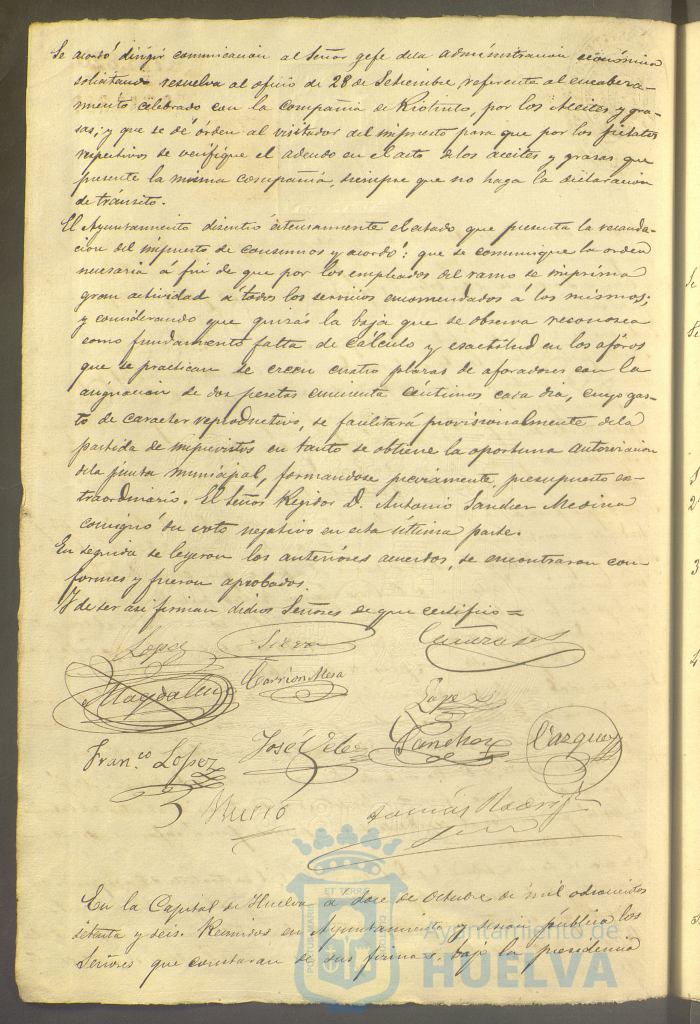 Se acordó dirigir comunicacion al Señor gefe dela administracion económica
solicitando resuelva al oficio de 28 de Setiembre referente al encabeza-
miento celebrado con la Compañia de Riotinto, por los Aceites y gra-
sas; y que se dé órden al visitador del impuesto para que por los fielatos
respectivos se verifique el adeudo en el acto de los aceites y grasas que
presente la misma compañia, siempre que no haga la declaracion
de tránsito.
El Ayuntamiento discutió atentamente el estado que presenta la recauda-
cion del impuesto de consumos y acordó: que se comunique la orden
necesaria á fin de que por los empleados del ramo se imprima
gran actividad á todos los servicios encomendados á los mismos;
y considerando que quizás la baja que se observa reconozca
como fundamento falta de cálculo y esactitud en los aforos
que se practican se creen cuatro plazas de aforadores con la
asignacion de dos pesetas cincuenta céntimos cada dia, cuyo gas-
to de caracter reproductivo, se facilitará provisionalmente dela
partida de imprevistos en tanto se obtiene la oportuna autorizacion
dela junta municipal, formandose previamente, presupuesto es-
traordinario. El Señor Regidor D. Antonio Sanchez Medina
consignó su voto negativo en esta última parte.
En seguida se leyeron los anteriores acuerdos, se encontraron con-
formes y fueron aprobados.
Y de ser asi firman dichos Señores de que certifico =
Lopez Sierra
Magdaleno Carrion Mesa Lopez
Fran.co Lopez José Velez Sanchez Vazquez
Tomás Rodrig
En la Capital de Huelva a doce de Octubre de mil ochocientos
setenta y seis. Reunidos en Ayuntamiento y sesion pública los
Señores que constaran de sus firmas, bajo la presidencia
Ayuntamiento de
HUELVA